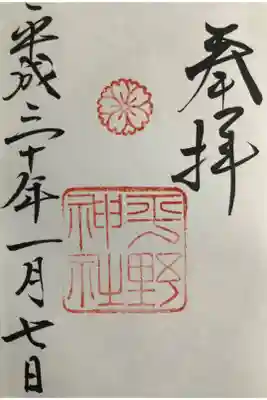 奉拝
平野
神社
平成三十年一月七日